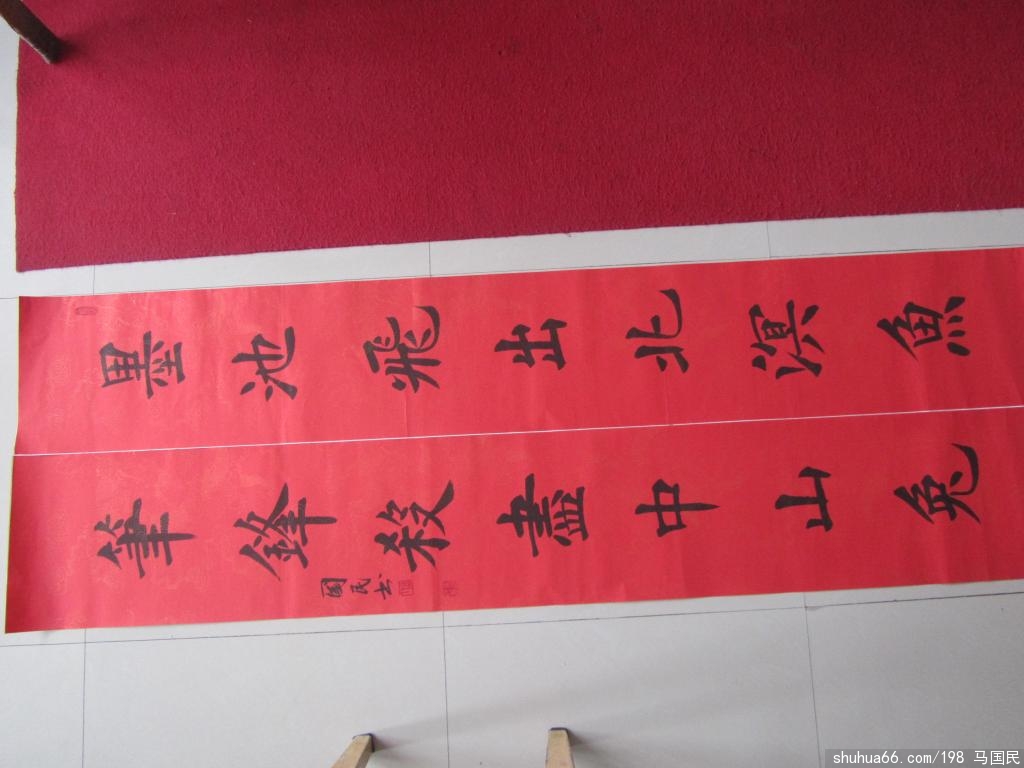 墨池飛出北溟魚
筆鋒殺盡中山兔
國民书
shuhua66.com/198 马国民